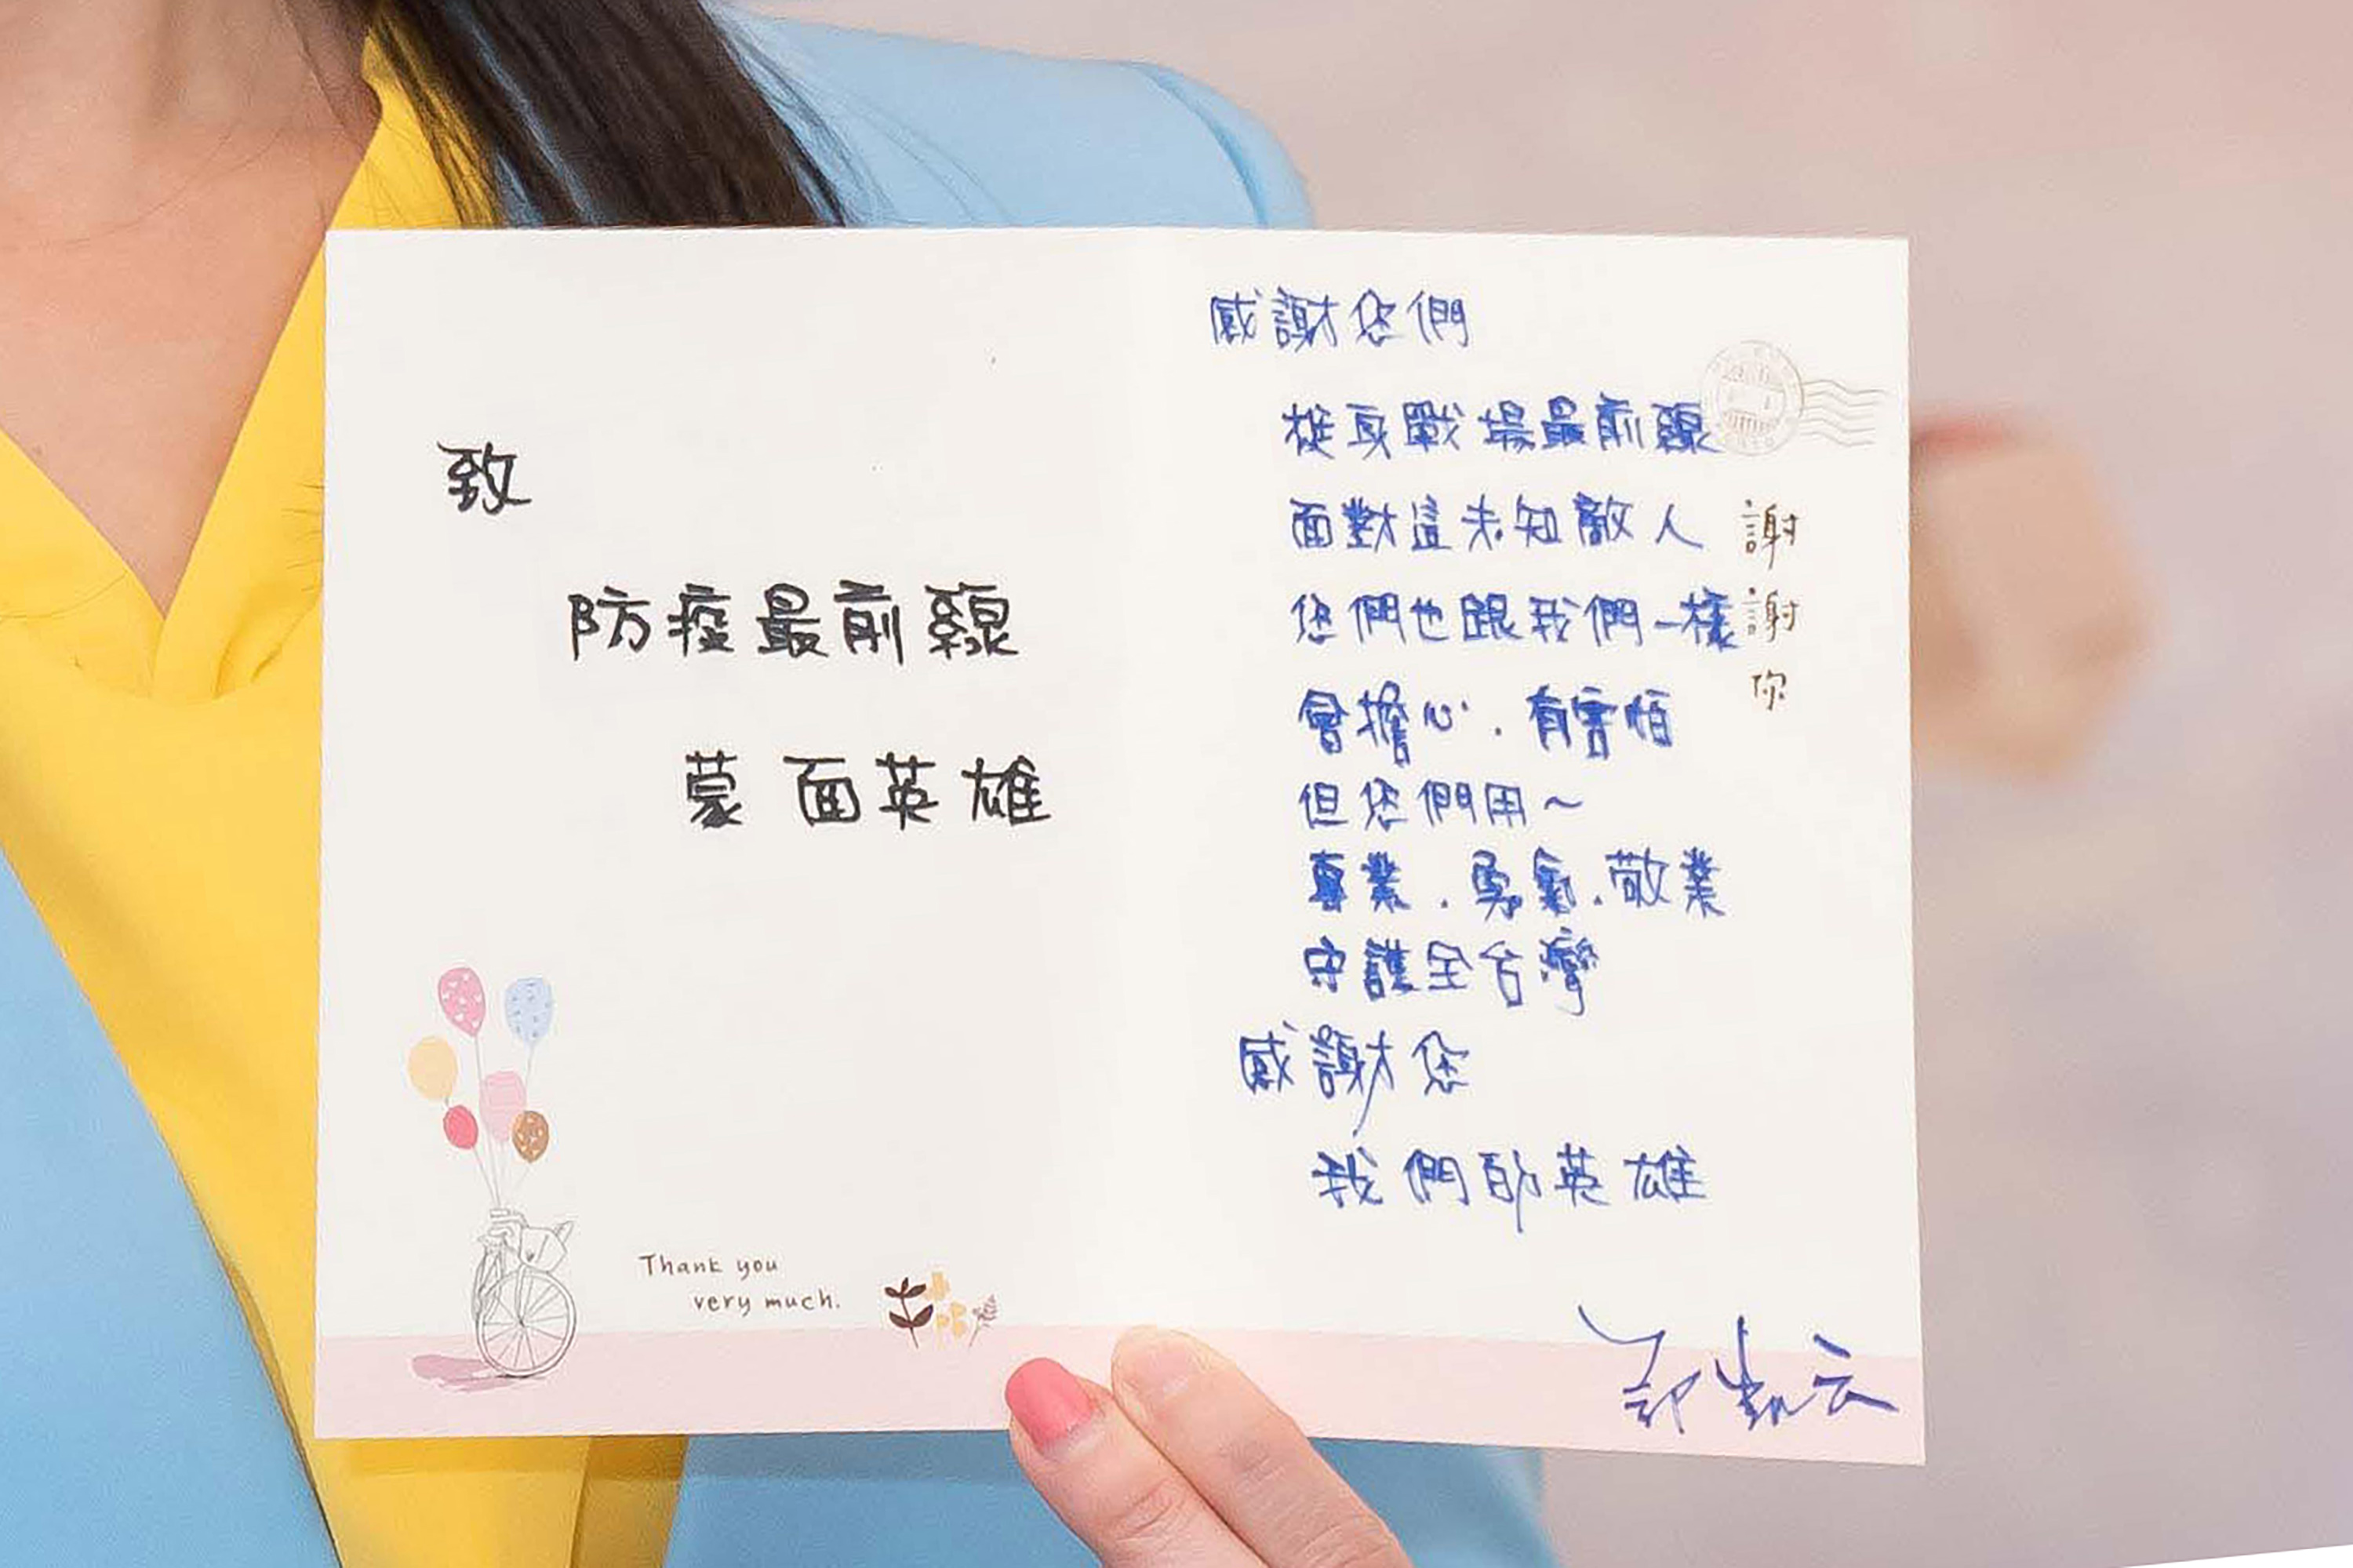 致
防疫最前線
蒙面英雄
Thank you
very much.
感謝您們
挺身戰場最前線
面對這未知敵人
您們也跟我們一樣
會擔心.有害怕
但您們用~
專業.勇氣.敬業
守護全台灣
感謝您
我們的英雄
謝謝你